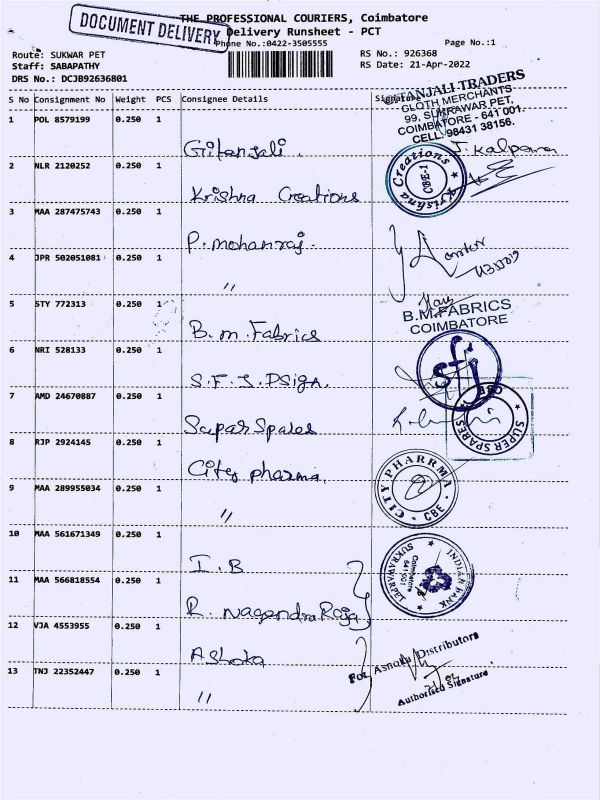 DOCUMENT DELIVERY
THE PROFESSIONAL COURIERS, Coimbatore
Delivery Runsheet - PCT
Phone No.:0422-3505555
Page No.:1
Route: SUKWAR PET
RS No.: 926368
Staff: SABAPATHY
RS Date: 21-Apr-2022
DRS No.: DCJB92636801
S No Consignment No Weight PCS Consignee Details Signature
GITANJALI TRADERS
CLOTH MERCHANTS
99, SUKRAWAR PET,
COIMBATORE - 641 001.
CELL: 98431 38156.
1 POL 8579199 0.250 1
Gitanjali.
J. Kalpana
2 NLR 2120252 0.250 1
Krishna Creations
Krishna Creations
CBE-1
3 MAA 287475743 0.250 1
P. mohanraj.
4 JPR 502051081 0.250 1
"
5 STY 772313 0.250 1
B.M.FABRICS
COIMBATORE
B. m. Fabrics
6 NRI 528133 0.250 1
sfj
S.F.J. DSign.
7 AMD 24670887 0.250 1
Supar Spares
SUPER SPARES
CBE
8 RJP 2924145 0.250 1
City pharma.
CITY PHARRMA
CBE
9 MAA 289955034 0.250 1
"
10 MAA 561671349 0.250 1
I.B
INDIAN BANK
SUKRAWARPET
Coimbatore
641 001
11 MAA 566818554 0.250 1
R. Nagendra Raja
12 VJA 4553955 0.250 1
Ashoka
For Ashoka Distributors
13 TNJ 22352447 0.250 1
"
Authorised Signature